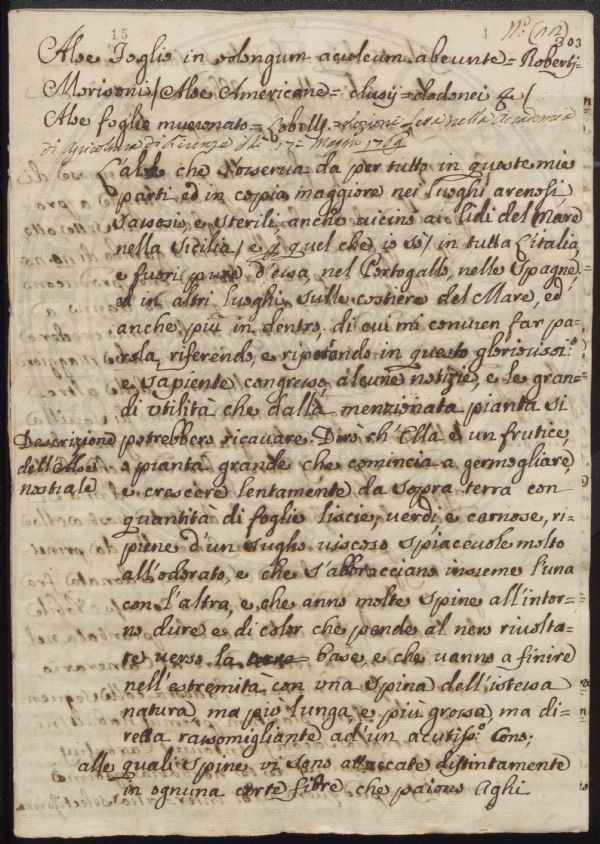 15 1 N.º (12)
303
Aloe Foglio in oblongum aculeum abeunte = Robertj =
Morisoni / Aloe Americane = clusij = dodonei & /
Aloe foglie mucronato = Lobelij. = Lezione letta nella Accademia
di Agricoltura di Firenze il dì 17 = Marzo 1764
L'aloe che s'osserva da per tutto in queste mie
parti ed in copia maggiore nei luoghi arenosi,
sassosi, e sterili, anche vicino ai lidi del Mare
nella Sicilia / e p quel che io sò / in tutta l'Italia,
e fuori pure d'essa, nel Portogallo, nelle Spagne,
ed in altri luoghi sulle costiere del Mare, ed
anche più in dentro, di cui mi convien far pa-
rola, riferendo, e riportando in questo gloriosiss:º
e sapiente congresso, alcune notizie, e le gran-
di utilità che dalla menzionata pianta si
Descrizione potrebbero ricavare. Dirò ch'Ella è un frutice,
dell'Aloe o pianta grande che comincia a germogliare,
nostrale e crescere lentamente da sopra terra con
quantità di foglie liscie, verdi, e carnose, ri-
piene d'un sugho viscoso spiacevole molto
all'odorato, e che s'abbracciano insieme l'una
con l'altra, e che anno molte spine all'intor-
no dure e di color che pende al nero rivolta-
te verso la base, e che vanno a finire
nell'estremità con una spina dell'istessa
natura, ma più lunga, e più grossa, ma di-
retta rassomigliante ad'un acutiss:º Cono;
alle quali spine vi sono attaccate distintamente
in ognuna certe fibre che paiono Aghi